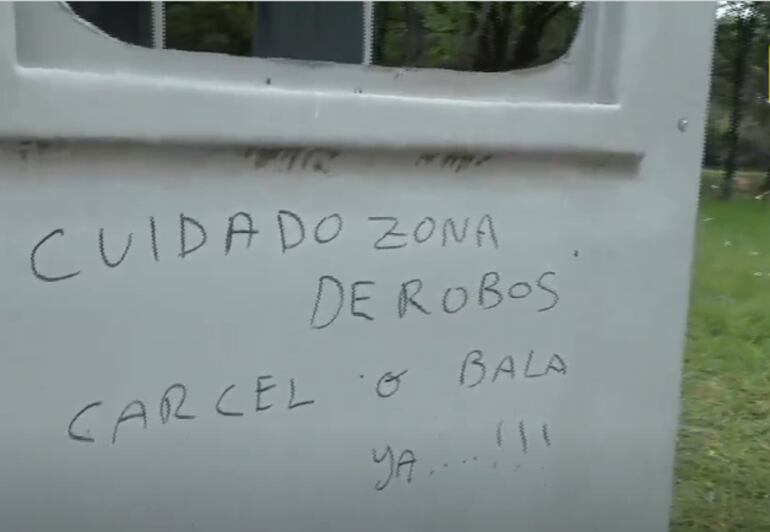 CUIDADO ZONA
DE ROBOS.
CARCEL o BALA
YA....!!!